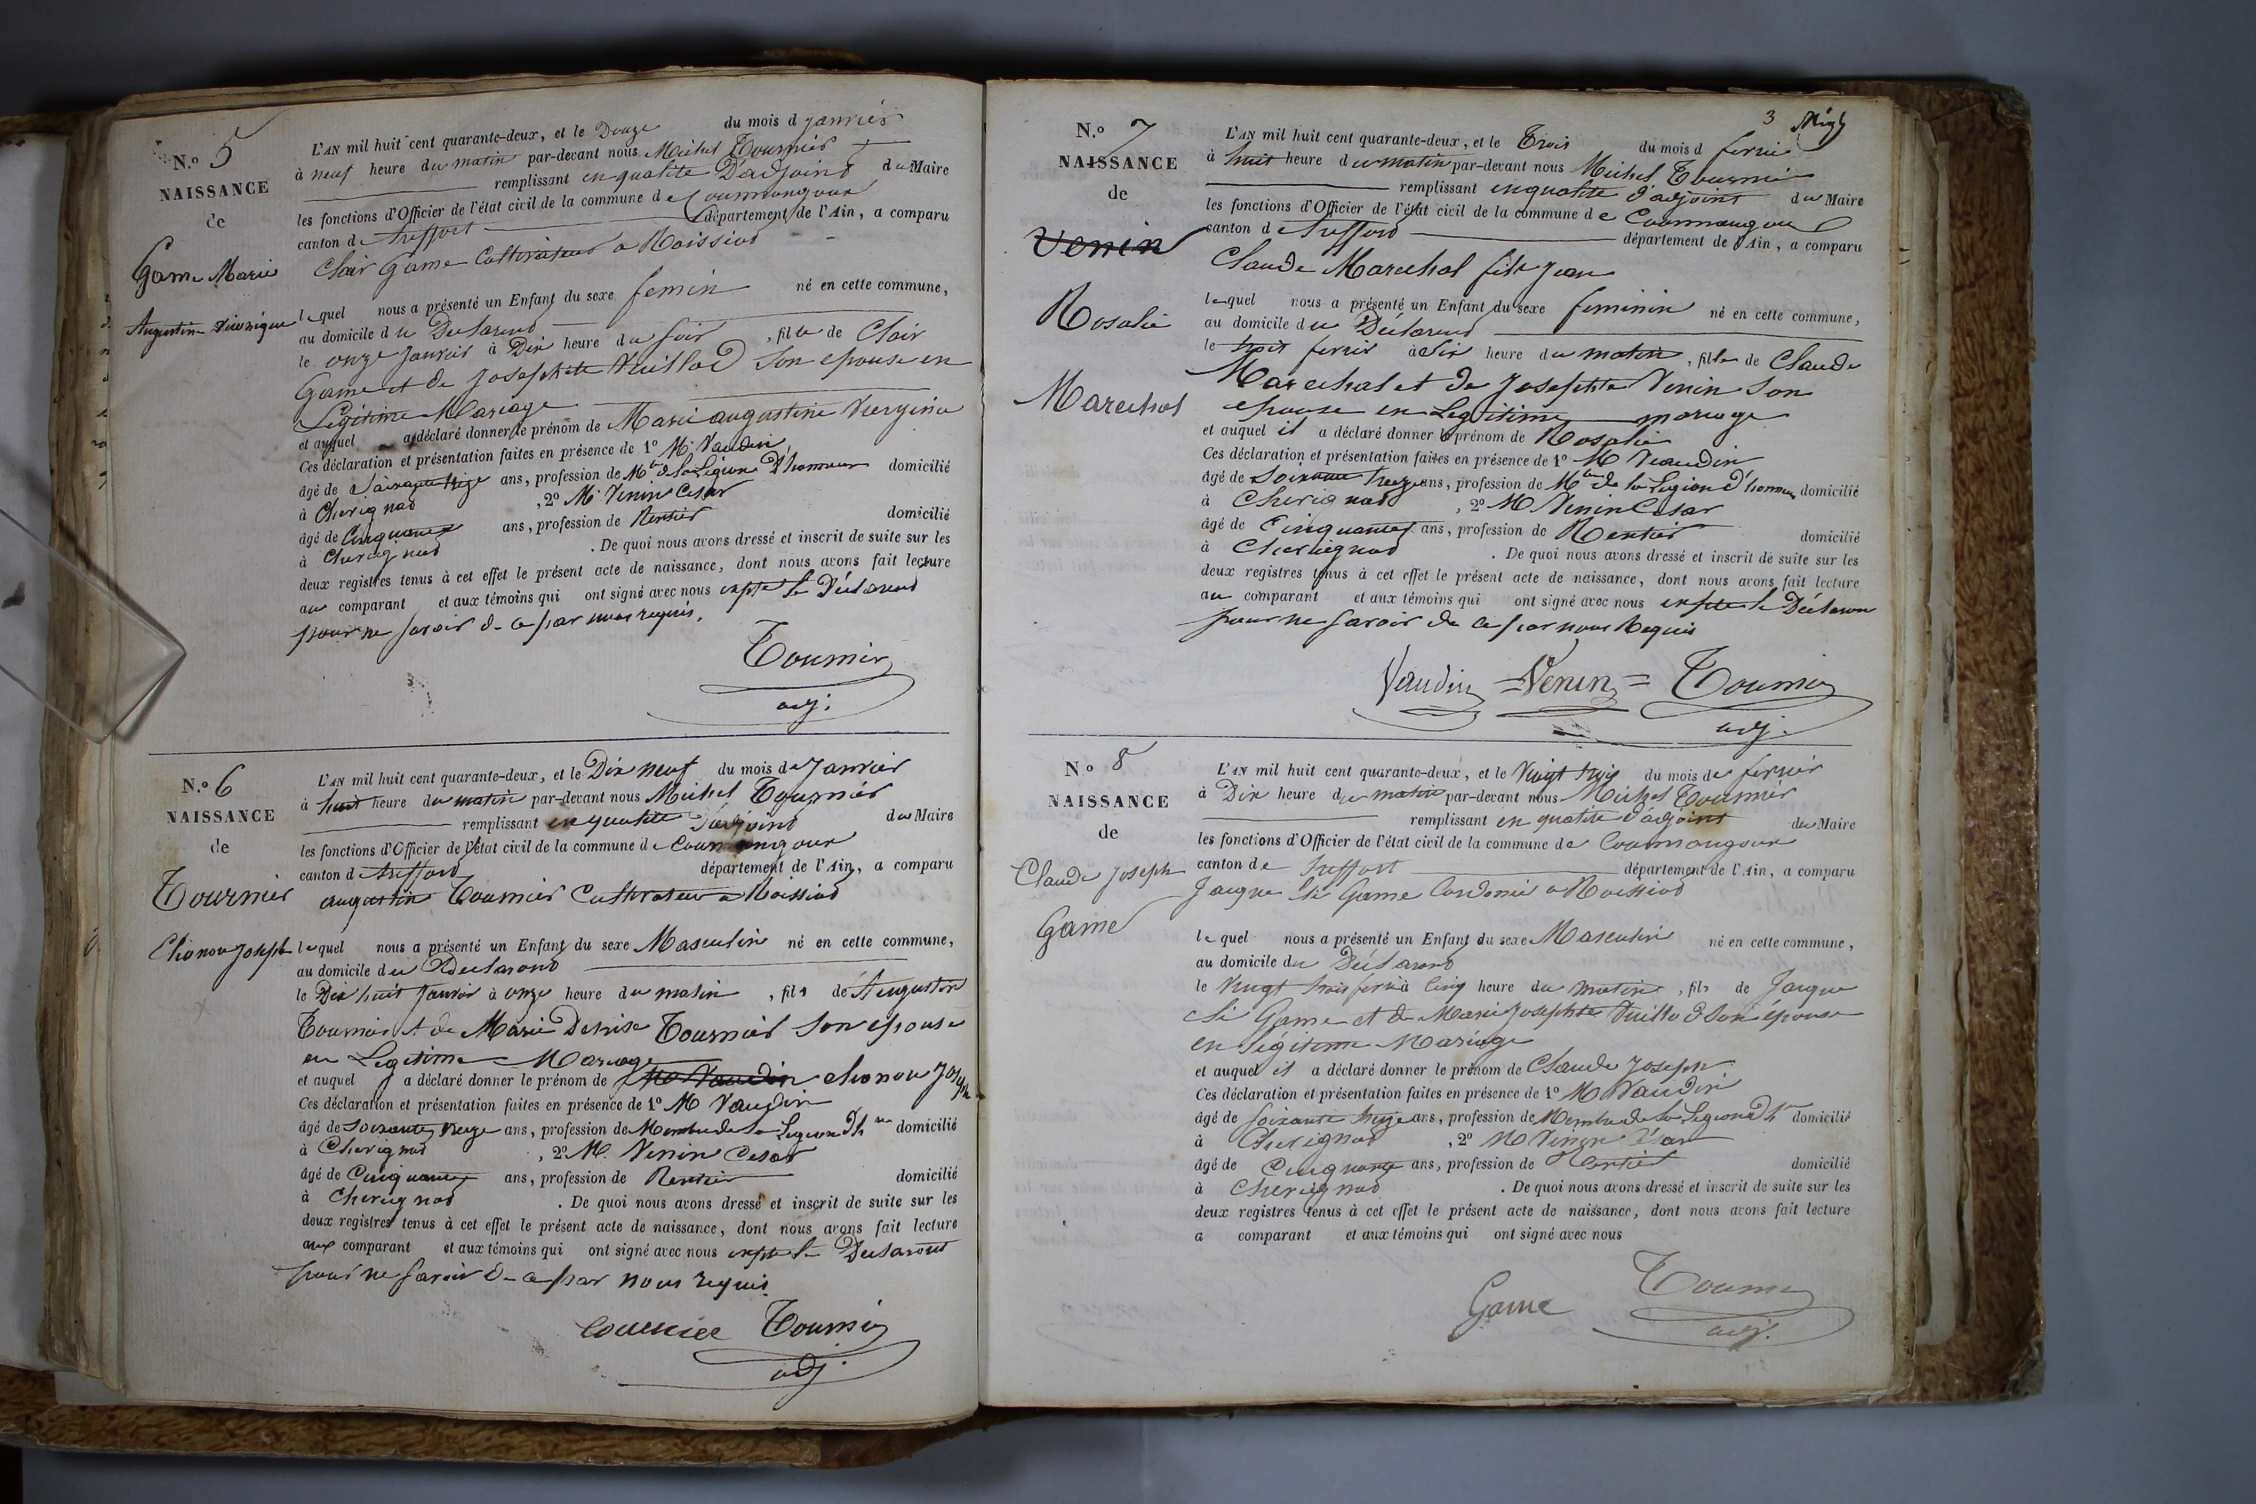 N.o 5
NAISSANCE
de
Game Marie
Augustine
L'AN mil huit cent quarante-deux, et le Douze du mois d janvier
à neuf heure du matin par-devant nous Michel Tournier
remplissant en qualité D'adjoint du Maire
les fonctions d'Officier de l'état civil de la commune de Courmangoux
canton de treffort département de l'Ain, a comparu
Clair Game Cultivateur a Roissiad
lequel nous a présenté un Enfant du sexe femin né en cette commune,
au domicile du Declarend
le onze janvier à Dix heure du soir, fille de Clair
Game et de Josephte Vuillod son epouse en
Legitime Mariage
et auquel a déclaré donner le prénom de Marie augustine
Ces déclaration et présentation faites en présence de 1o Mr Vaudin
âgé de Soixante treize ans, profession de Mbre de la Légion D'honneur domicilié
à Cherignad, 2o Mr Venin Cesar
âgé de Cinquante ans, profession de Rentier domicilié
à Cherignad. De quoi nous avons dressé et inscrit de suite sur les
deux registres tenus à cet effet le présent acte de naissance, dont nous avons fait lecture
au comparant et aux témoins qui ont signé avec nous expte le Déclarend
pour ne savoir de ce par nous requis.
Tournier
adj.
N.o 6
NAISSANCE
de
Tournier
Joseph
L'AN mil huit cent quarante-deux, et le Dix neuf du mois de Janvier
à huit heure du matin par-devant nous Michel Tournier
remplissant en qualité D'adjoint du Maire
les fonctions d'Officier de l'état civil de la commune de Courmangoux
canton d treffort département de l'Ain, a comparu
augustin Tournier Cultivateur a Roissiad
lequel nous a présenté un Enfant du sexe Masculin né en cette commune,
au domicile du Declarend
le Dix huit Janvier à onze heure du matin, fils de Augustin
Tournier et de Marie Denise Tournier son epouse
en Legitime Mariage
et auquel a déclaré donner le prénom de Mr Vaudin Joseph
Ces déclaration et présentation faites en présence de 1o Mr Vaudin
âgé de soixante treize ans, profession de Membre de la Legion d'h domicilié
à Cherignad, 2o Mr Venin Cesar
âgé de Cinquante ans, profession de Rentier domicilié
à Cherignad. De quoi nous avons dressé et inscrit de suite sur les
deux registres tenus à cet effet le présent acte de naissance, dont nous avons fait lecture
aux comparant et aux témoins qui ont signé avec nous expte le Declarent
pour ne savoir de ce par nous requis
Tournier
adj.
3
N.o 7
NAISSANCE
de
Venin
Rosalie
Marechal
L'AN mil huit cent quarante-deux, et le Trois du mois d fevrie
à huit heure du matin par-devant nous Michel Tournier
remplissant en qualite d'adjoint du Maire
les fonctions d'Officier de l'état civil de la commune de Courmangoux
canton de trefford département de l'Ain, a comparu
Claude Marechal fils Jean
lequel nous a présenté un Enfant du sexe feminin né en cette commune,
au domicile du Déclarend
le trois fevrier à Six heure du matin, fille de Claude
Marechal et de Josephte Venin son
epouse en Legitime mariage
et auquel il a déclaré donner le prénom de Rosalie
Ces déclaration et présentation faites en présence de 1o Mr Vaudin
âgé de Soixante treize ans, profession de Mbre de la Legion d'honneur domicilié
à Cherignad, 2o Mr Venin Cesar
âgé de Cinquante ans, profession de Rentier domicilié
à Cherignad. De quoi nous avons dressé et inscrit de suite sur les
deux registres tenus à cet effet le présent acte de naissance, dont nous avons fait lecture
au comparant et aux témoins qui ont signé avec nous expte le Déclaron
pour ne savoir de ce par nous Requis
Vaudin Venin Tournier
adj.
No 8
NAISSANCE
de
Claude Joseph
Game
L'AN mil huit cent quarante-deux, et le Vingt trois du mois de fevrier
à Dix heure du matin par-devant nous Michel Tournier
remplissant en qualité d'adjoint du Maire
les fonctions d'Officier de l'état civil de la commune de Courmangoux
canton de treffort département de l'Ain, a comparu
Jaque Game Cordonnie a Roissiad
lequel nous a présenté un Enfant du sexe Masculin né en cette commune,
au domicile du Déclarend
le Vingt trois fevrier à Cinq heure du matin, fils de Jaque
Game et de Marie Josephte Vuillod son épouse
en légitime Mariage
et auquel il a déclaré donner le prénom de Claude Joseph
Ces déclaration et présentation faites en présence de 1o Mr Vaudin
âgé de soixante treize ans, profession de Membre de la Legion d'h domicilié
à Cherignad, 2o Mr Venin César
âgé de Cinquante ans, profession de Rentier domicilié
à Cherignad. De quoi nous avons dressé et inscrit de suite sur les
deux registres tenus à cet effet le présent acte de naissance, dont nous avons fait lecture
a comparant et aux témoins qui ont signé avec nous
Game Tournier
adj.